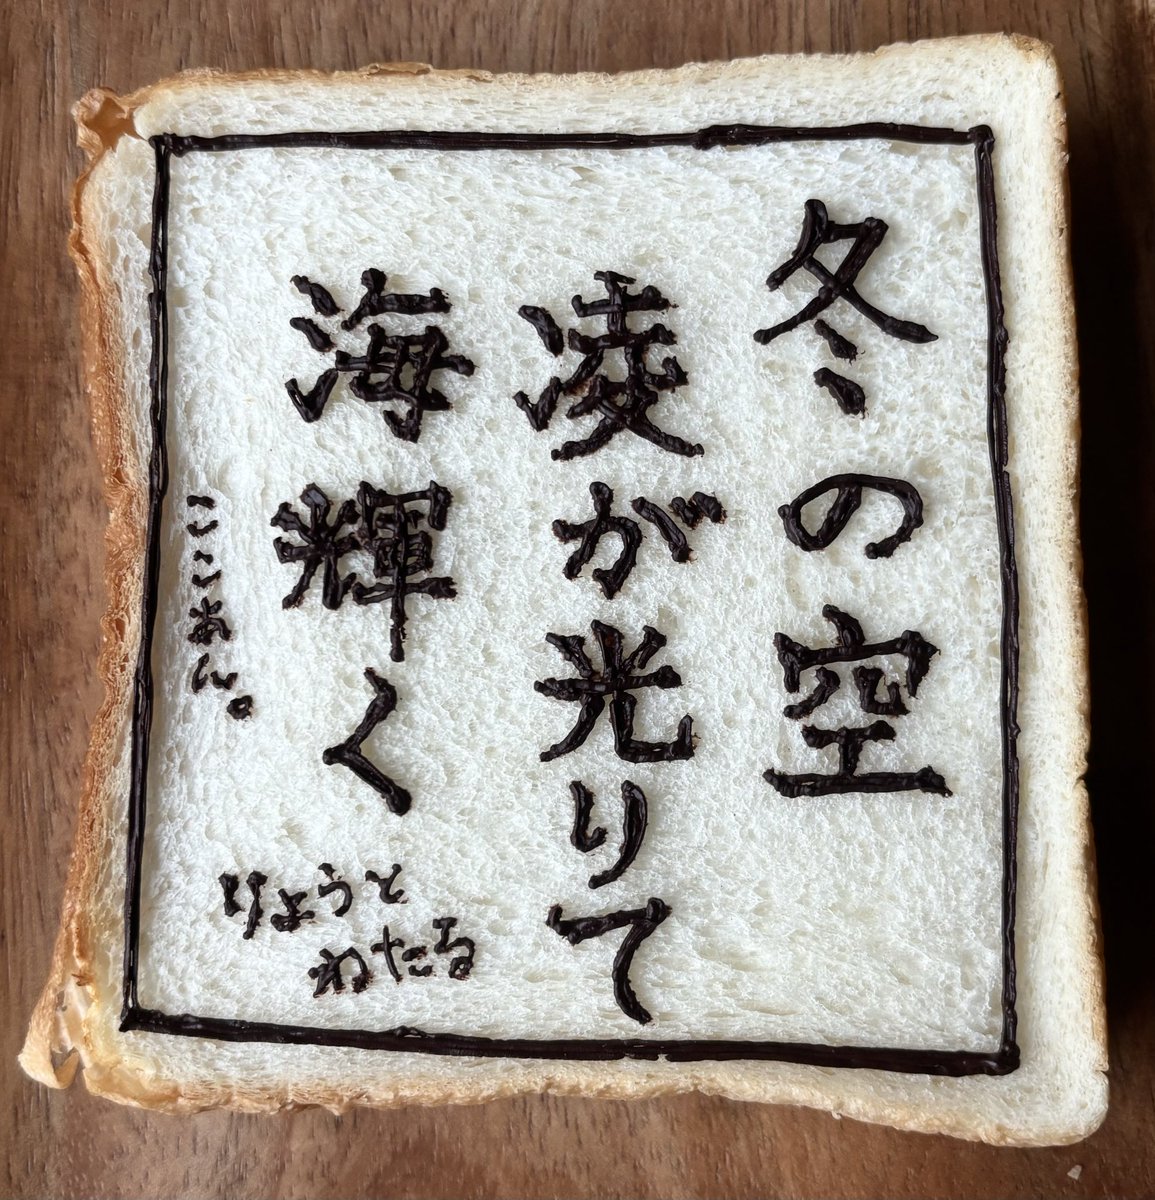 冬の空
凌が光りて
海輝く
りょうと
わたる
こここあん。